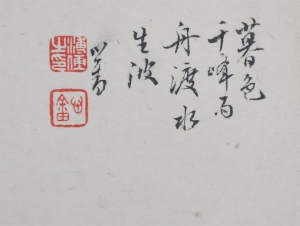 暮色
千峰雨
舟渡水
生波
心畬